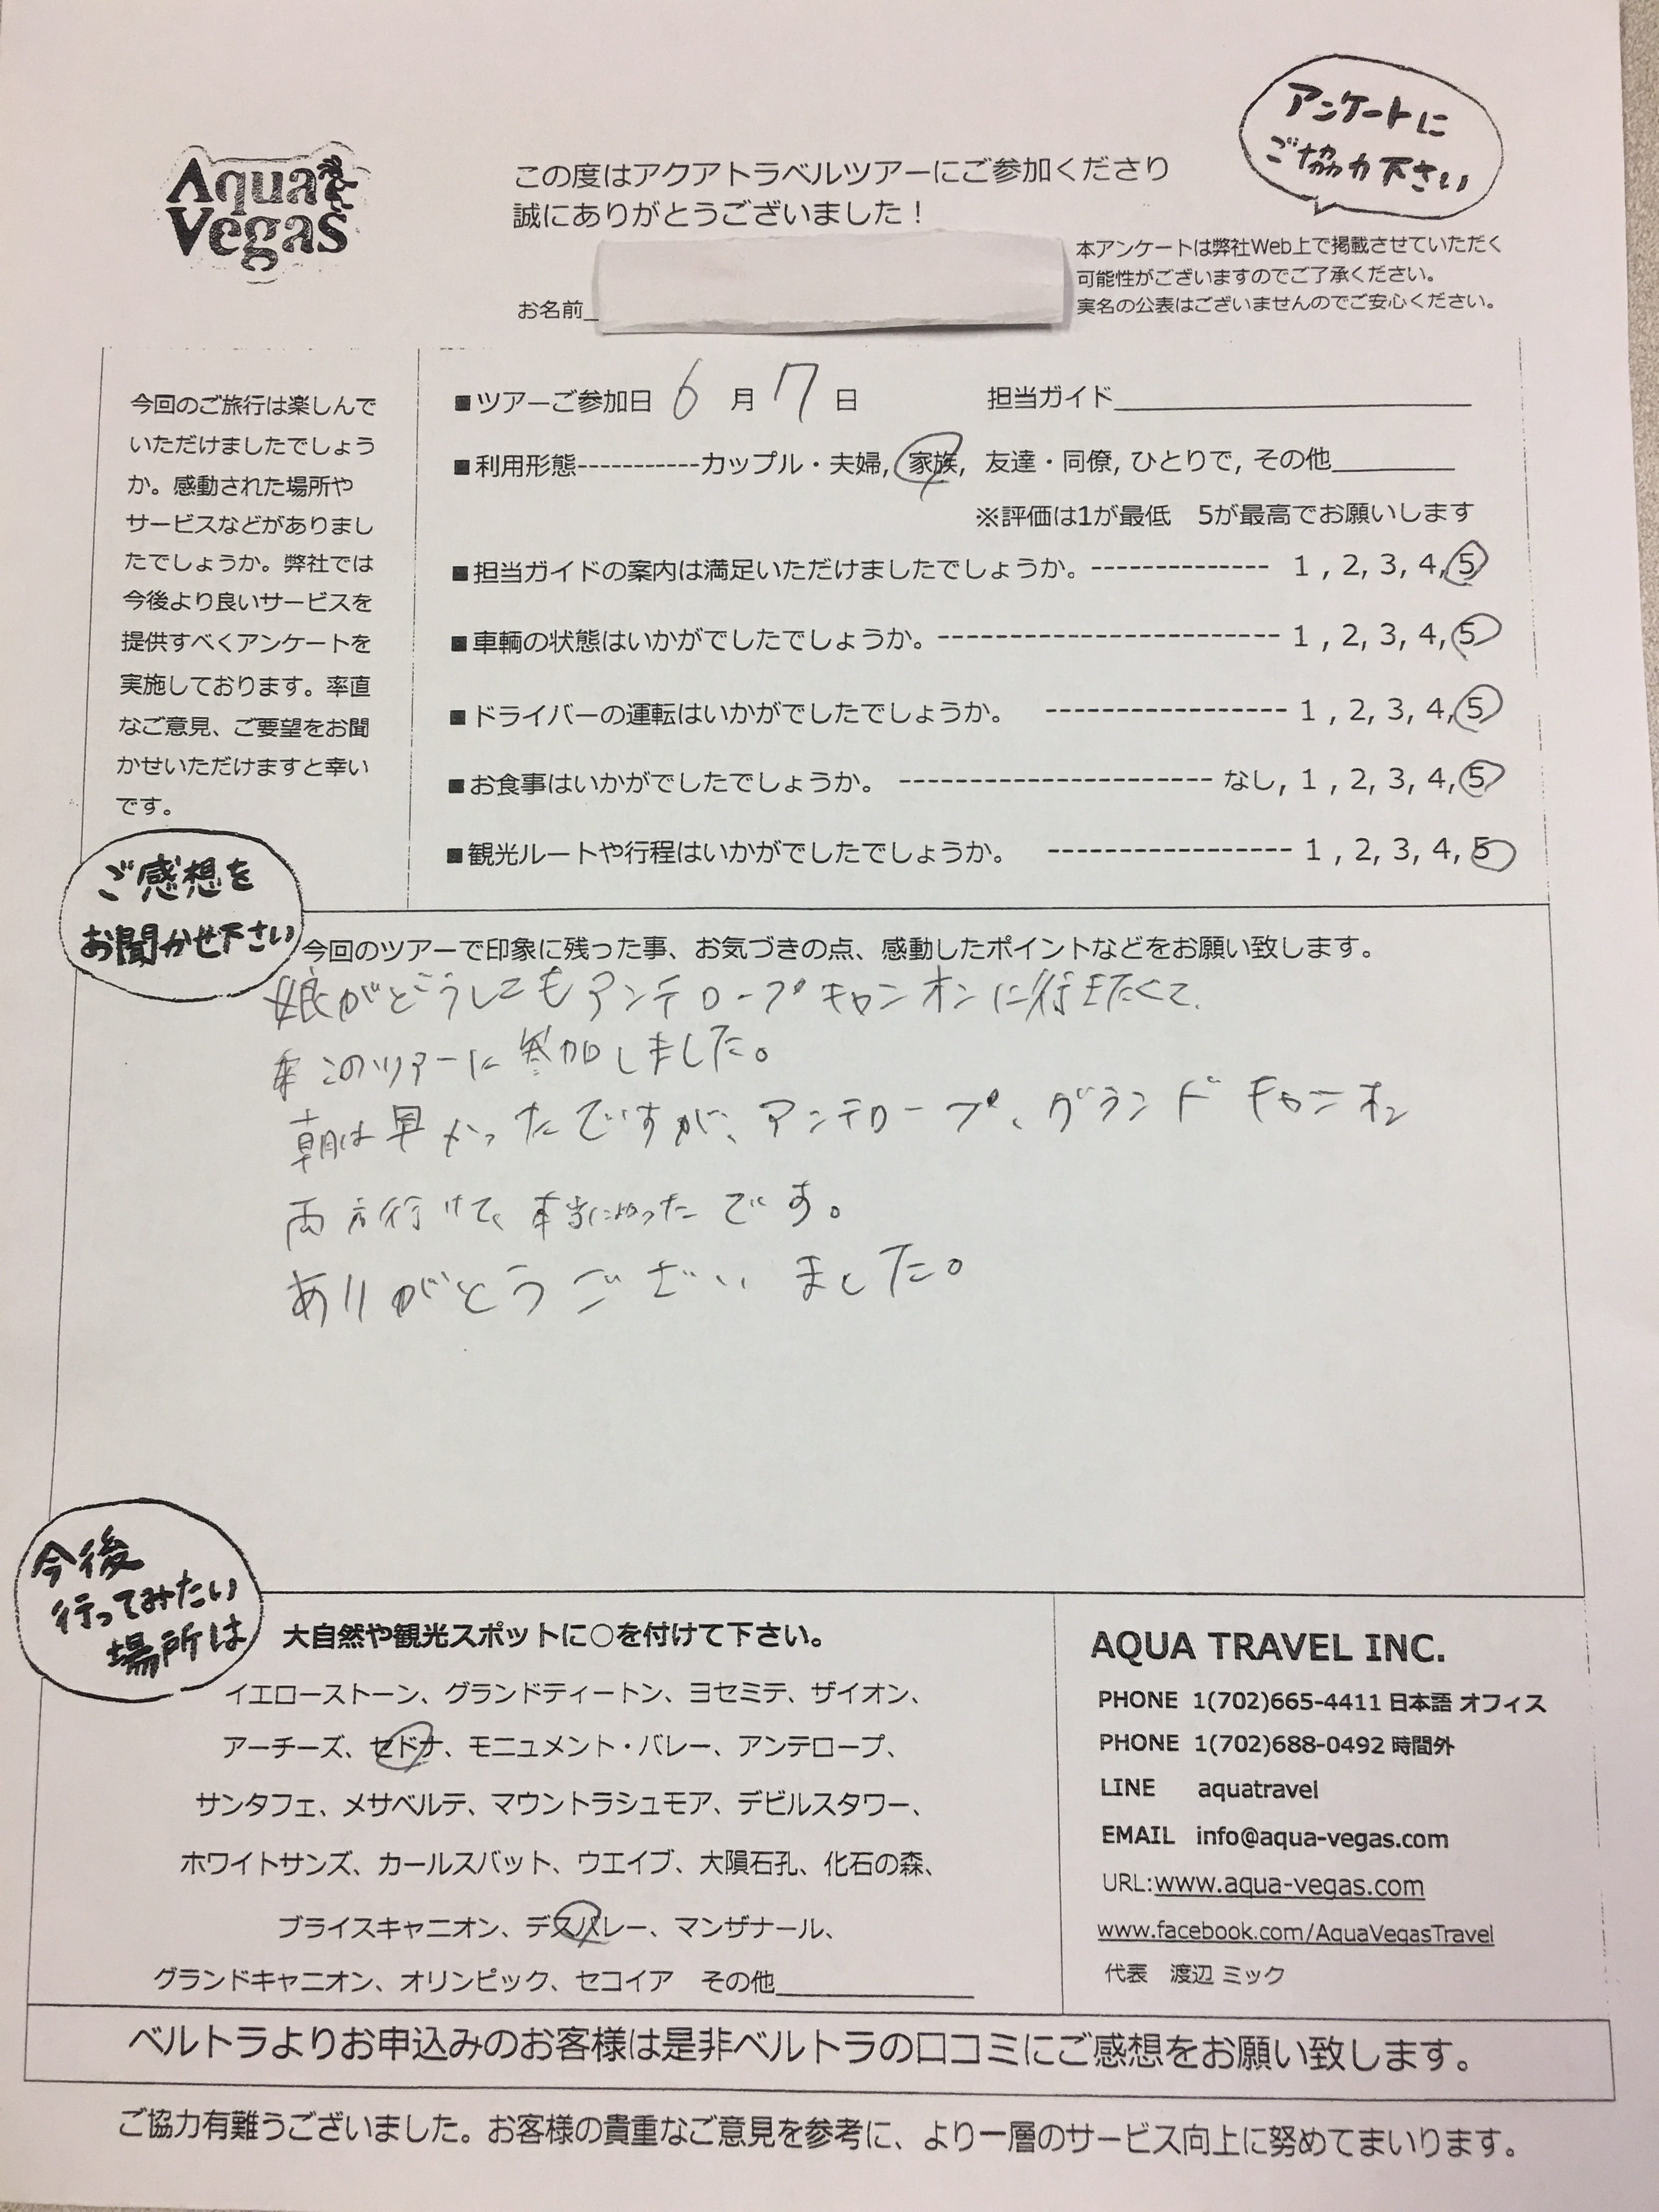 アンケートに
ご協力下さい
Aqua
Vegas
この度はアクアトラベルツアーにご参加くださり
誠にありがとうございました！
本アンケートは弊社Web上で掲載させていただく
可能性がございますのでご了承ください。
実名の公表はございませんのでご安心ください。
お名前_
今回のご旅行は楽しんで
いただけましたでしょう
か。感動された場所や
サービスなどがありまし
たでしょうか。弊社では
今後より良いサービスを
提供すべくアンケートを
実施しております。率直
なご意見、ご要望をお聞
かせいただけますと幸い
です。
■ツアーご参加日 6 月 7 日 担当ガイド__________
■利用形態-----------カップル・夫婦, 家族, 友達・同僚, ひとりで, その他________
※評価は1が最低 5が最高でお願いします
■担当ガイドの案内は満足いただけましたでしょうか。-------------- 1 , 2, 3, 4, 5
■車輌の状態はいかがでしたでしょうか。--------------------------- 1 , 2, 3, 4, 5
■ドライバーの運転はいかがでしたでしょうか。 ----------------- 1 , 2, 3, 4, 5
■お食事はいかがでしたでしょうか。 ---------------------- なし, 1 , 2, 3, 4, 5
■観光ルートや行程はいかがでしたでしょうか。 ----------------- 1 , 2, 3, 4, 5
ご感想を
お聞かせ下さい
今回のツアーで印象に残った事、お気づきの点、感動したポイントなどをお願い致します。
娘がどうしてもアンテロープキャンオンに行きたくて、
このツアーに参加しました。
朝は早かったですが、アンテロープ、グランドキャニオン
両方行けて、本当によかったです。
ありがとうございました。
今後
行ってみたい
場所は
大自然や観光スポットに○を付けて下さい。
イエローストーン、グランドティートン、ヨセミテ、ザイオン、
アーチーズ、セドナ、モニュメント・バレー、アンテロープ、
サンタフェ、メサベルテ、マウントラシュモア、デビルスタワー、
ホワイトサンズ、カールスバット、ウエイブ、大隕石孔、化石の森、
ブライスキャニオン、デスバレー、マンザナール、
グランドキャニオン、オリンピック、セコイア その他__________
AQUA TRAVEL INC.
PHONE 1(702)665-4411 日本語 オフィス
PHONE 1(702)688-0492 時間外
LINE aquatravel
EMAIL info@aqua-vegas.com
URL:www.aqua-vegas.com
www.facebook.com/AquaVegasTravel
代表 渡辺 ミック
ベルトラよりお申込みのお客様は是非ベルトラの口コミにご感想をお願い致します。
ご協力有難うございました。お客様の貴重なご意見を参考に、より一層のサービス向上に努めてまいります。